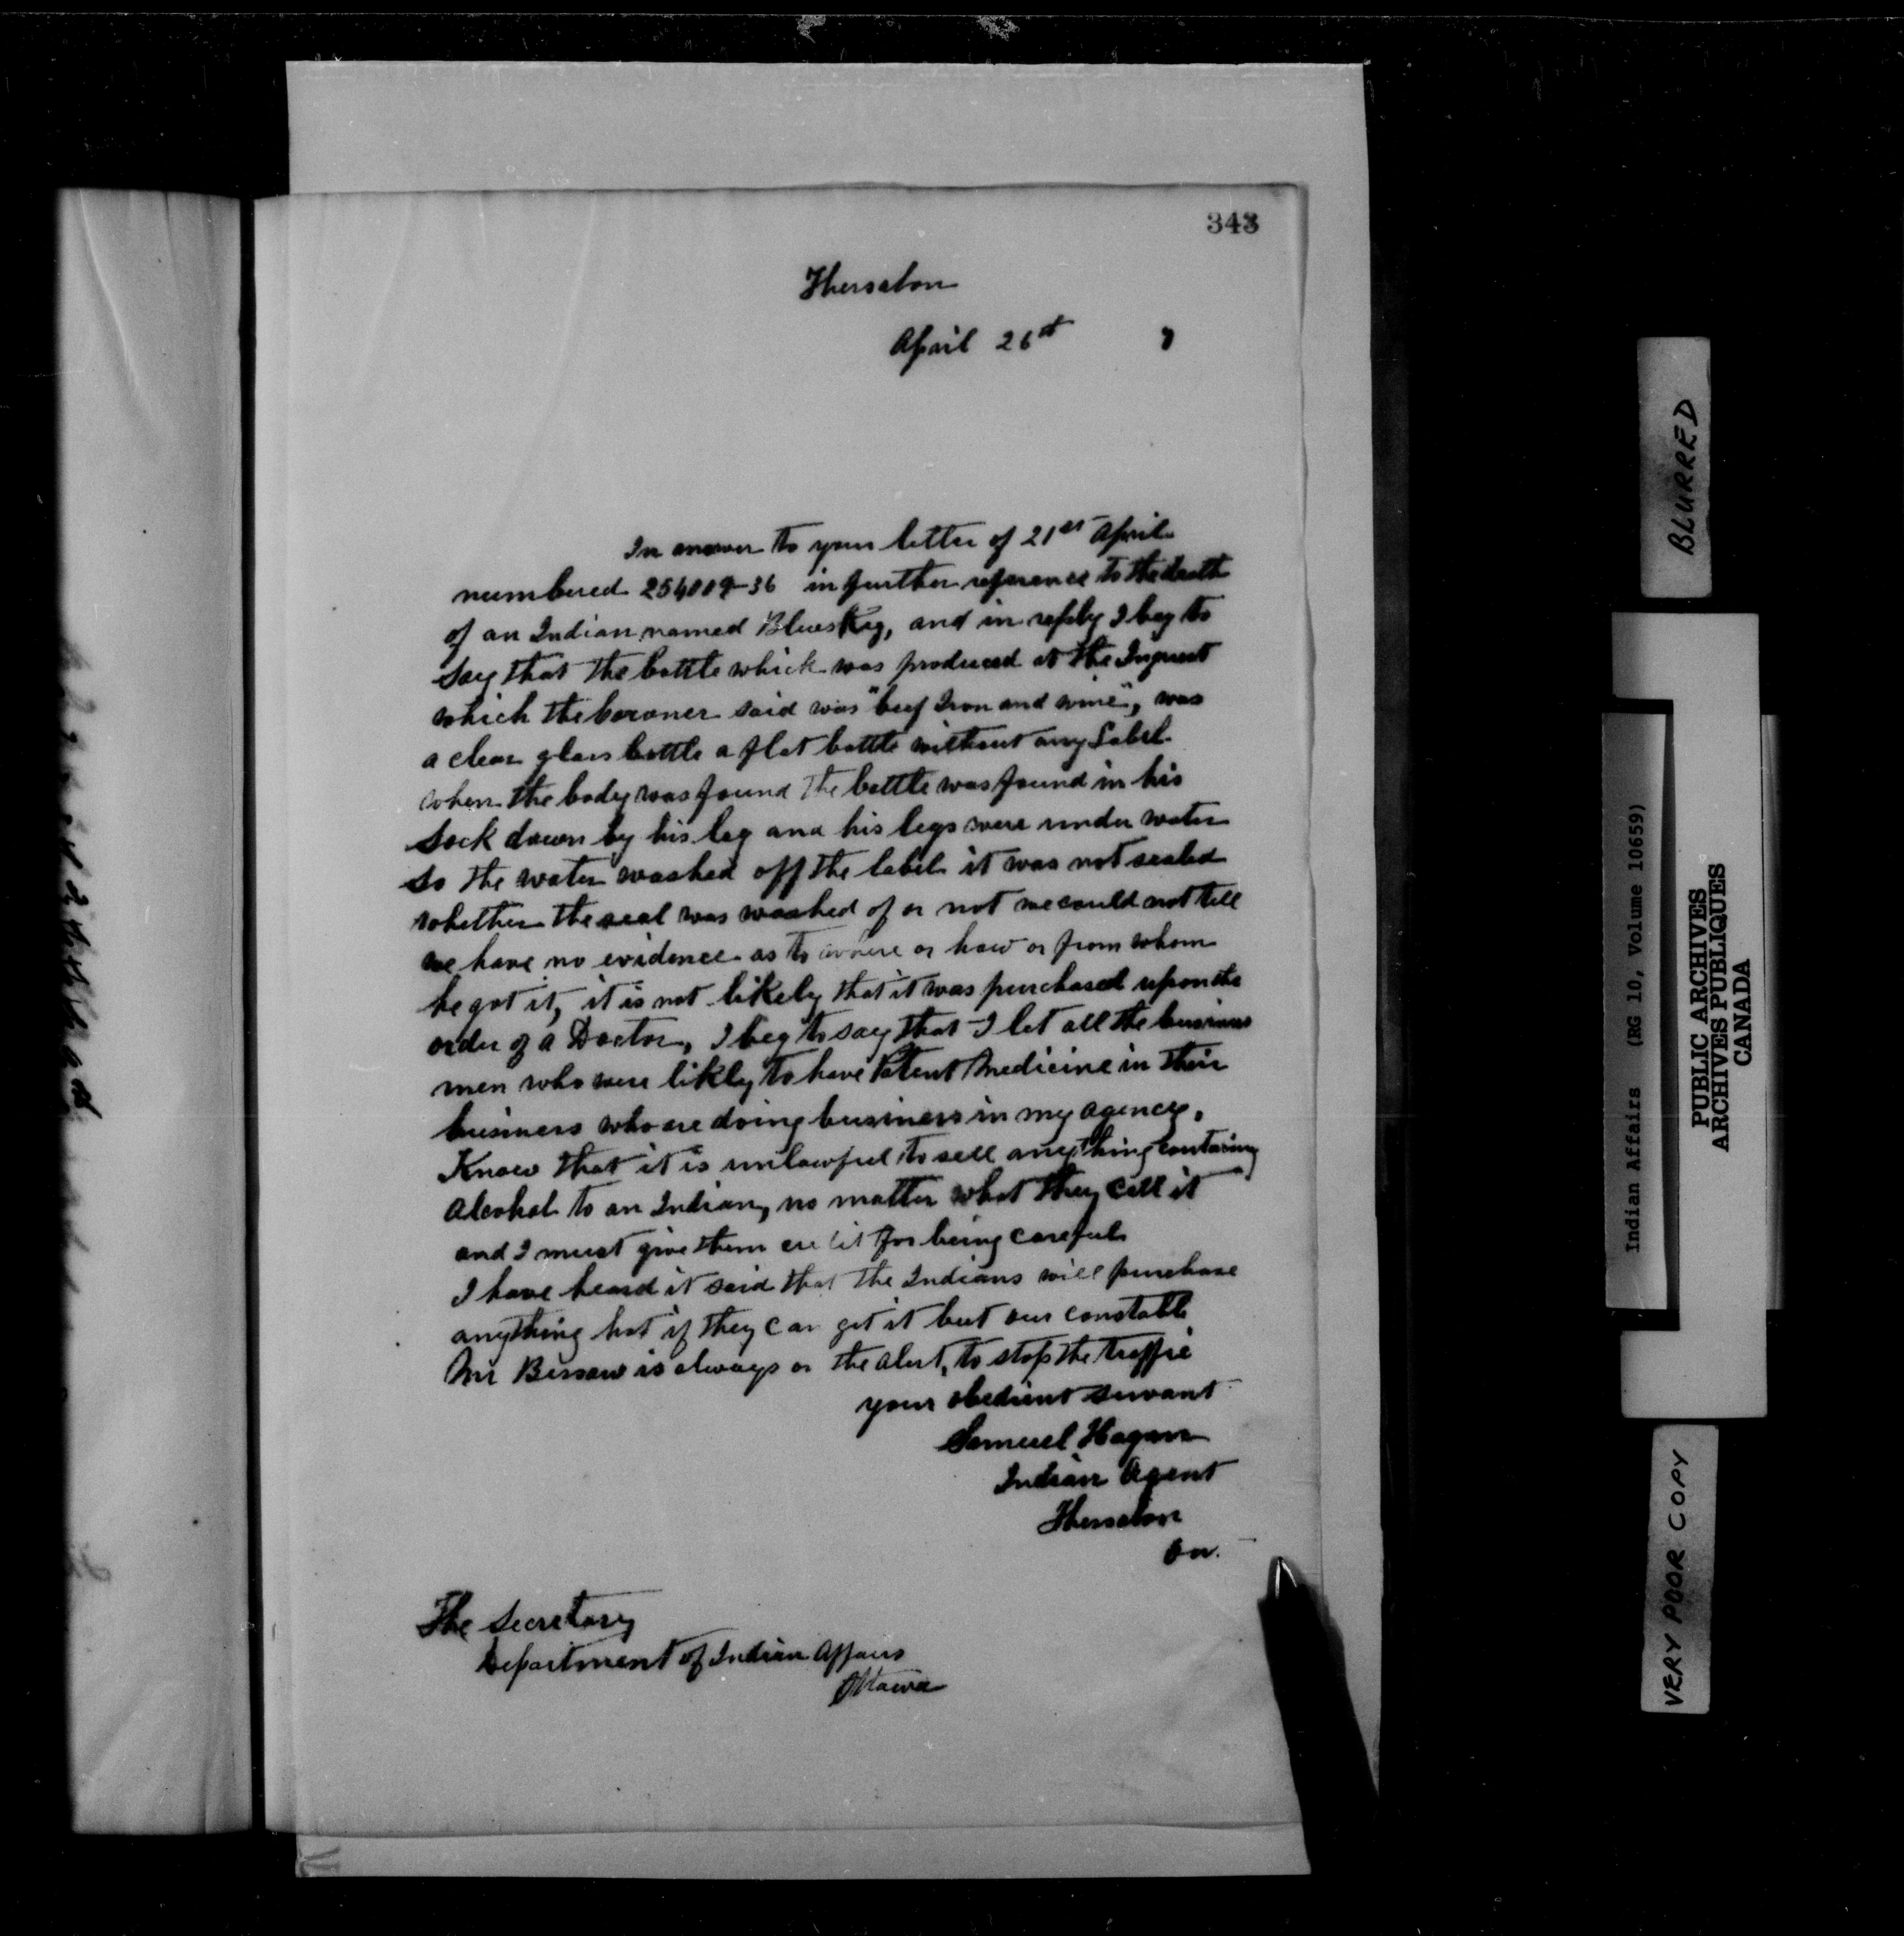 343
Thessalon
April 26th 7
In answer to your letter of 21st April
numbered 254009-36 in further reference to the death
of an Indian named BlueSky, and in reply I beg to
say that the bottle which was produced at the Inquest
which the coroner said was "beef Iron and wine", was
a clear glass bottle a flat bottle without any Label
when the body was found the bottle was found in his
Sock down by his leg and his legs were under water
so the water washed off the label it was not sealed
whether the seal was washed of or not we could not tell
we have no evidence as to where or how or from whom
he got it, it is not likely that it was purchased upon the
order of a Doctor, I beg to say that I let all the business
men who were likly to have Patent Medicine in their
business who are doing business in my agency,
Know that it is unlawful to sell anything containing
Alcohol to an Indian, no matter what they Call it
and I must give them credit for being careful
I have heard it said that the Indians will purchase
anything hot if they can get it but our constable
Mr Bissaw is always on the alert, to stop the traffic
your obedient servant
Samuel Hagan
Indian Agent
Thessalon
On.
The Secretary
Department of Indian Affairs
Ottawa
BLURRED
Indian Affairs (RG 10, Volume 10659)
PUBLIC ARCHIVES
ARCHIVES PUBLIQUES
CANADA
VERY POOR COPY